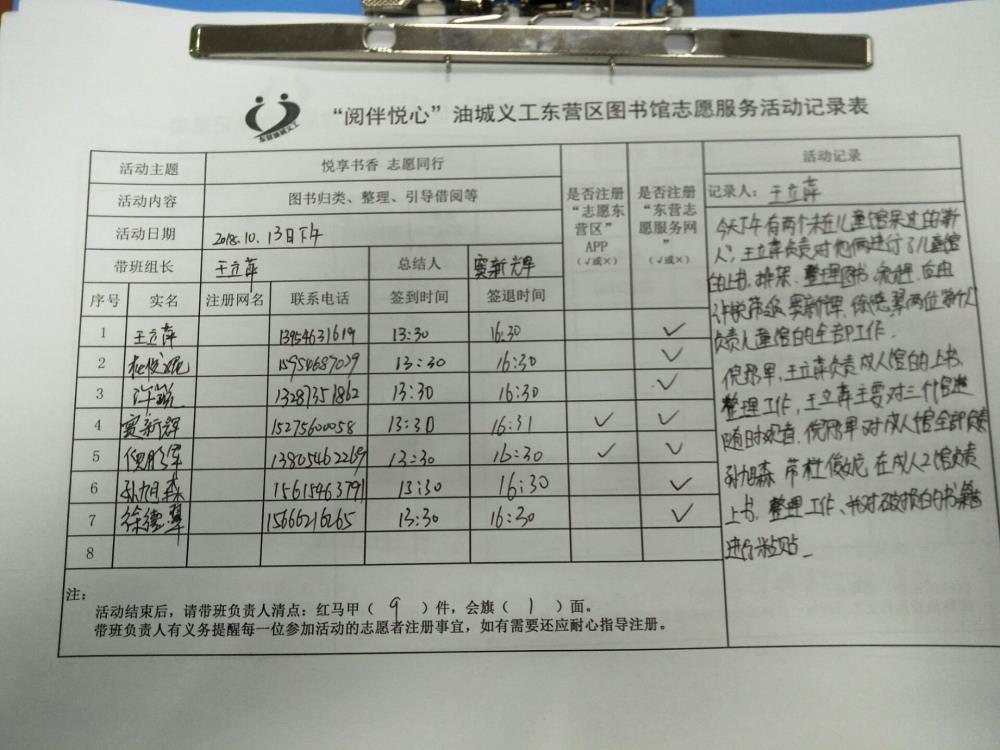 东营油城义工
“阅伴悦心”油城义工东营区图书馆志愿服务活动记录表
活动主题 悦享书香 志愿同行
活动内容 图书归类、整理、引导借阅等
活动日期 2018.10.13日下午
带班组长 王立萍 总结人 窦新辉
是否注册“志愿东营区”APP（√或×）
是否注册“东营志愿服务网”（√或×）
序号 实名 注册网名 联系电话 签到时间 签退时间
1 王立萍 13954631619 13:30 16:30 ✓
2 杜俊妮 15954687029 13:30 16:30 ✓
3 许锐 13287351862 13:30 16:30 ✓
4 窦新辉 15275600058 13:30 16:31 ✓ ✓
5 倪彤军 13805462269 13:30 16:30 ✓ ✓
6 孙旭森 15615463791 13:30 16:30 ✓
7 徐德翠 15666216265 13:30 16:30 ✓
8
注：
活动结束后，请带班负责人清点：红马甲（ 9 ）件，会旗（ 1 ）面。
带班负责人有义务提醒每一位参加活动的志愿者注册事宜，如有需要还应耐心指导注册。
活动记录
记录人：王立萍
今天下午有两个未在儿童馆呆过的新
人，王立萍负责对他们俩进行了儿童馆
的上书、排架、整理图书流程，后由
许锐带领窦新辉、徐德翠两位新人
负责儿童馆的全部工作．
王立萍负责成人馆的上书、
整理工作，王立萍主要对三个馆
随时观查，对成人馆全部负责
孙旭森带杜俊妮在成人2馆负责
上书、整理工作、并对破损的书籍
进行粘贴